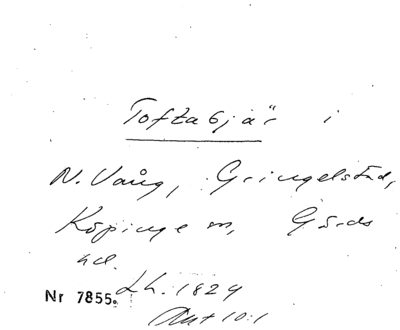 Toftabjär i
N. Vång, Gringelstad,
Köpinge sn, Gärds
hd.
Lh. 1829
Nr 7855.
Akt 10:1